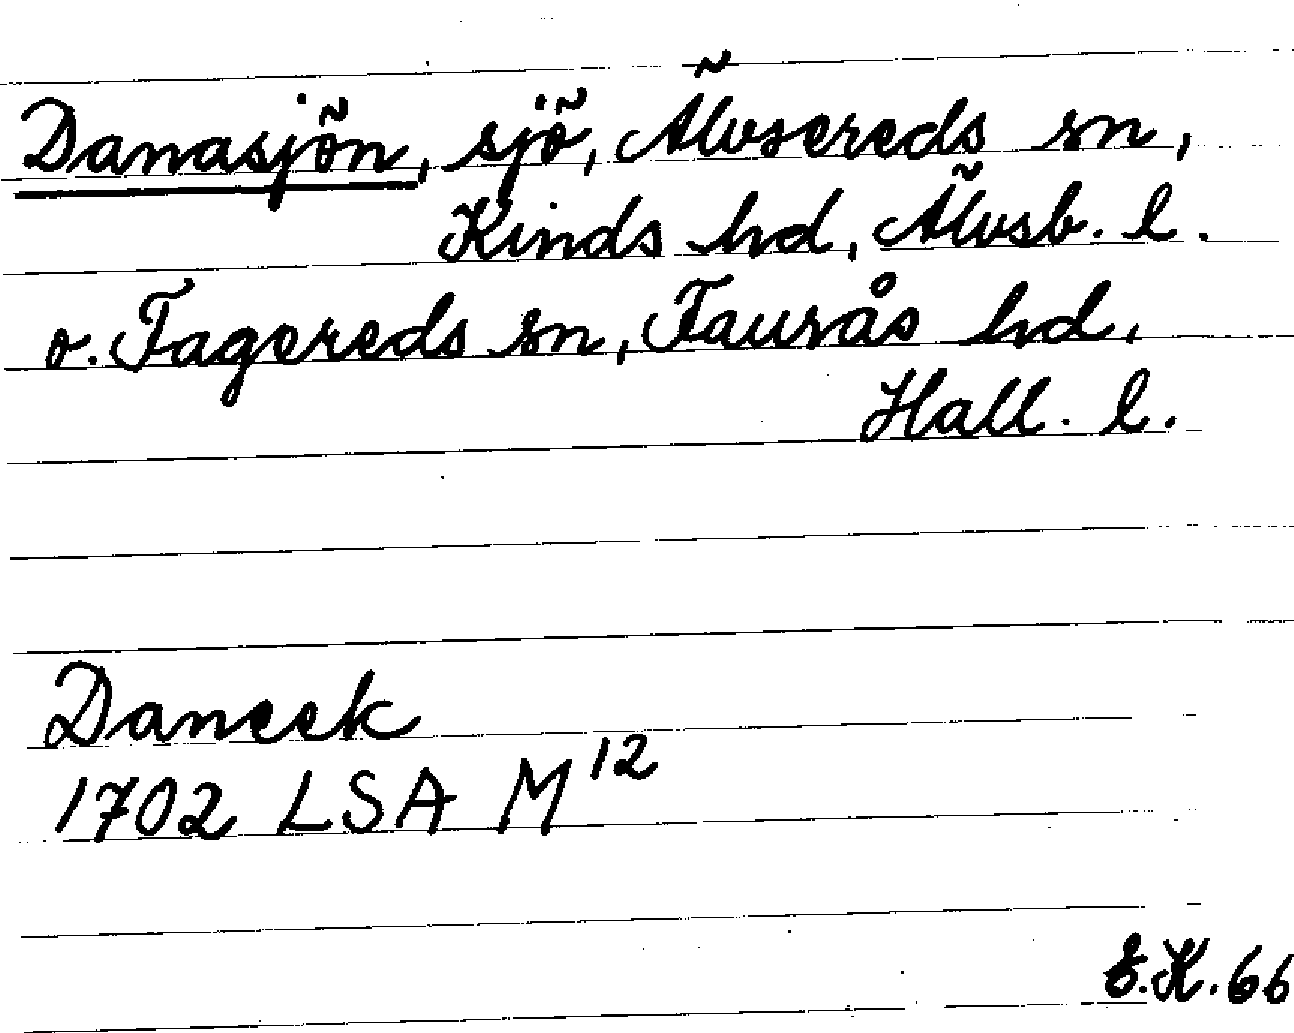 Danasjön, sjö, Älvsereds sn,
Kinds hd, Älvsb. l.
o. Fagereds sn, Faurås hd,
Hall. l.
Daneek
1702 LSA M12
E.K. 66